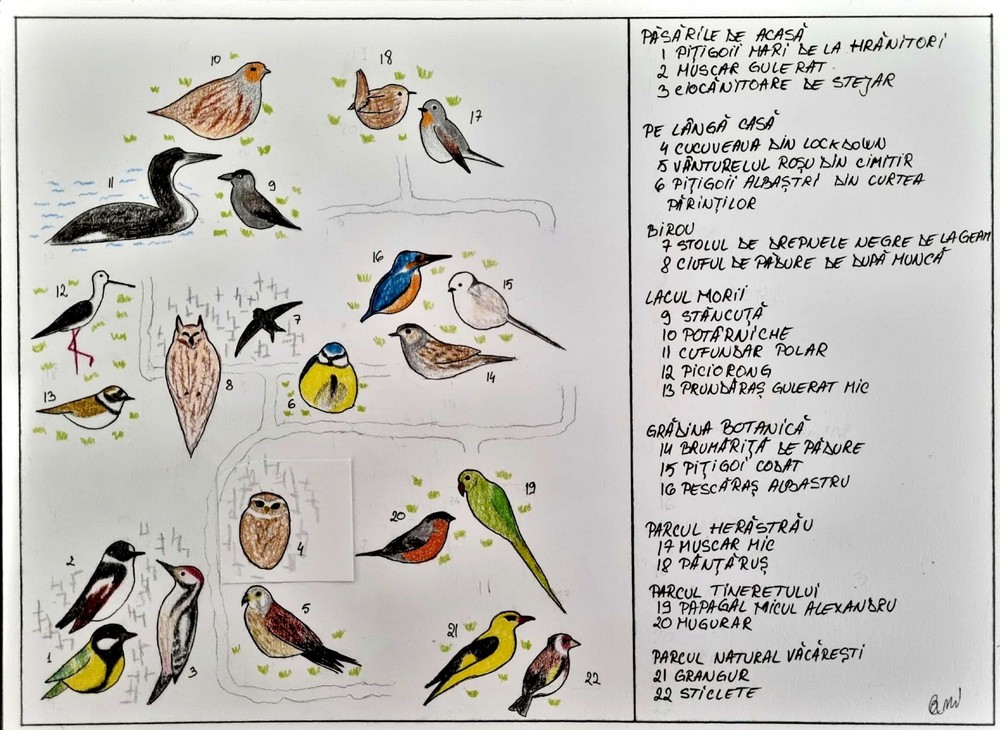 10
18
17
11
9
16
12
15
7
14
8
6
13
19
20
4
2
5
21
1
3
22
PĂSĂRILE DE ACASĂ
1 PIȚIGOII MARI DE LA HRĂNITORI
2 MUSCAR GULERAT
3 CIOCĂNITOARE DE STEJAR
PE LÂNGĂ CASĂ
4 CUCUVEAUA DIN LOCKDOWN
5 VÂNTURELUL ROȘU DIN CIMITIR
6 PIȚIGOII ALBAȘTRI DIN CURTEA
PĂRINȚILOR
BIROU
7 STOLUL DE DREPNELE NEGRE DE LA GEAM
8 CIUFUL DE PĂDURE DE DUPĂ MUNCĂ
LACUL MORII
9 STĂNCUȚĂ
10 POTÂRNICHE
11 CUFUNDAR POLAR
12 PICIORONG
13 PRUNDĂRAȘ GULERAT MIC
GRĂDINA BOTANICĂ
14 BRUMĂRIȚĂ DE PĂDURE
15 PIȚIGOI CODAT
16 PESCĂRAȘ ALBASTRU
PARCUL HERĂSTRĂU
17 MUSCAR MIC
18 PÂNȚĂRUȘ
PARCUL TINERETULUI
19 PAPAGAL MICUL ALEXANDRU
20 MUGURAR
PARCUL NATURAL VĂCĂREȘTI
21 GRANGUR
22 STICLETE